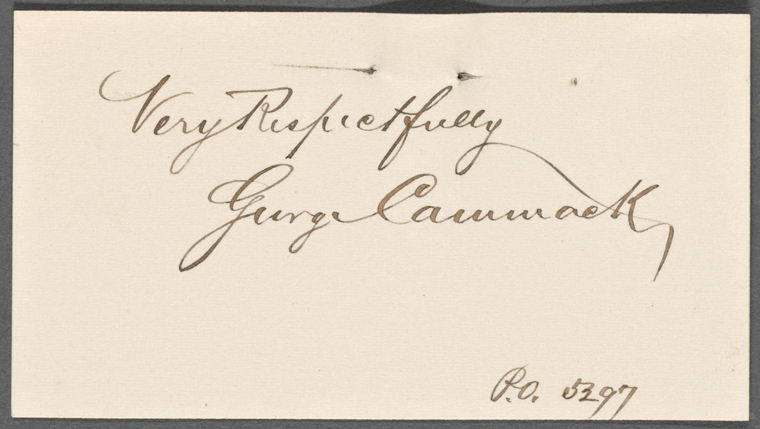 Very Respectfully
George Cammack
P.O. 5297